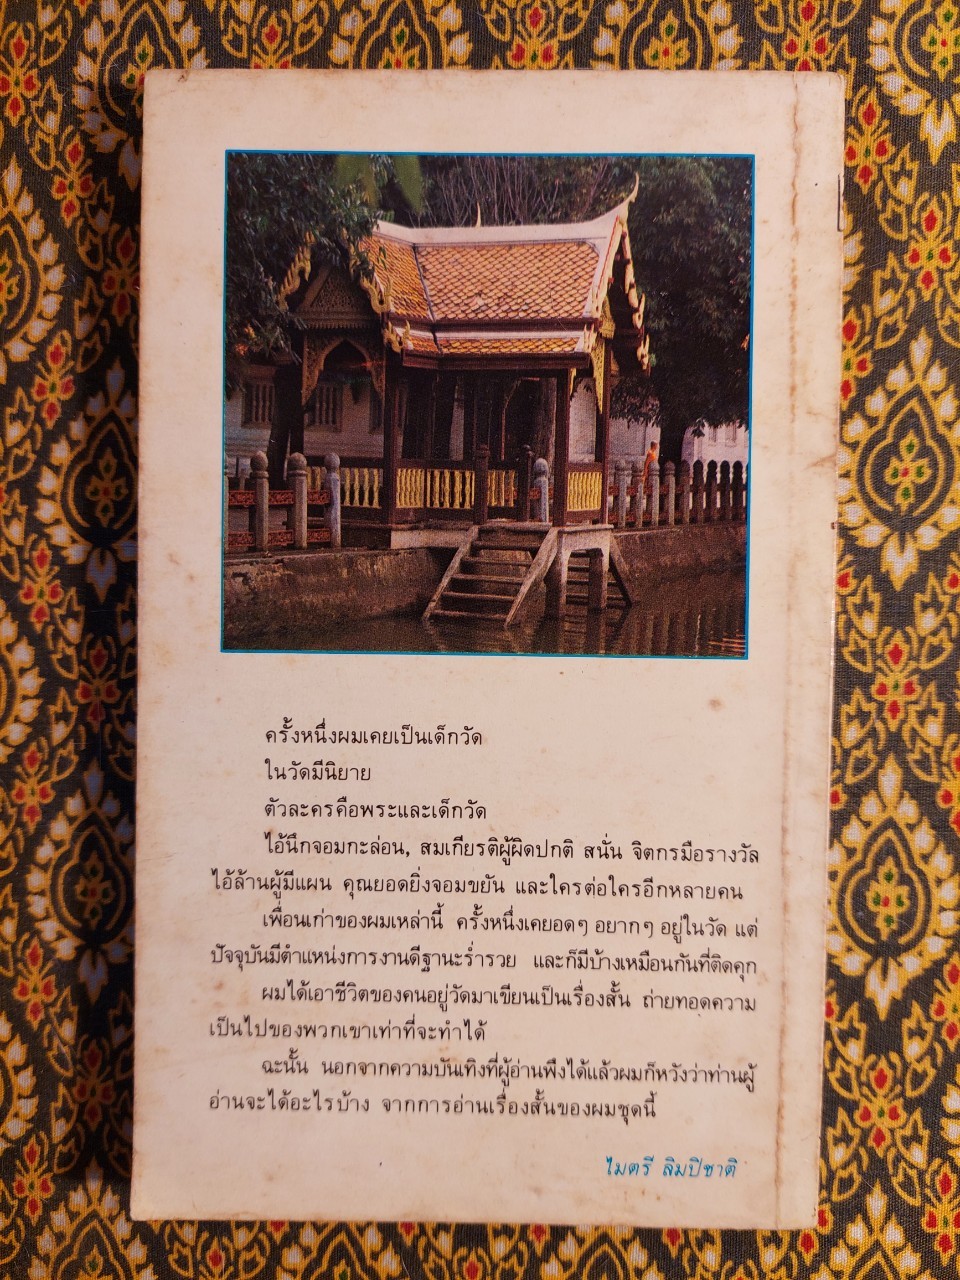 ครั้งหนึ่งผมเคยเป็นเด็กวัด
ในวัดมีนิยาย
ตัวละครคือพระและเด็กวัด
ไอ้นึกจอมกะล่อน, สมเกียรติผู้ผิดปกติ สนั่น จิตกรมือรางวัล
ไอ้ล้านผู้มีแผน คุณยอดยิ่งจอมขยัน และใครต่อใครอีกหลายคน
เพื่อนเก่าของผมเหล่านี้ ครั้งหนึ่งเคยอดๆ อยากๆ อยู่ในวัด แต่
ปัจจุบันมีตำแหน่งการงานดีฐานะร่ำรวย และก็มีบ้างเหมือนกันที่ติดคุก
ผมได้เอาชีวิตของคนอยู่วัดมาเขียนเป็นเรื่องสั้น ถ่ายทอดความ
เป็นไปของพวกเขาเท่าที่จะทำได้
ฉะนั้น นอกจากความบันเทิงที่ผู้อ่านพึงได้แล้วผมก็หวังว่าท่านผู้
อ่านจะได้อะไรบ้าง จากการอ่านเรื่องสั้นของผมชุดนี้
ไมตรี ลิมปิชาติ